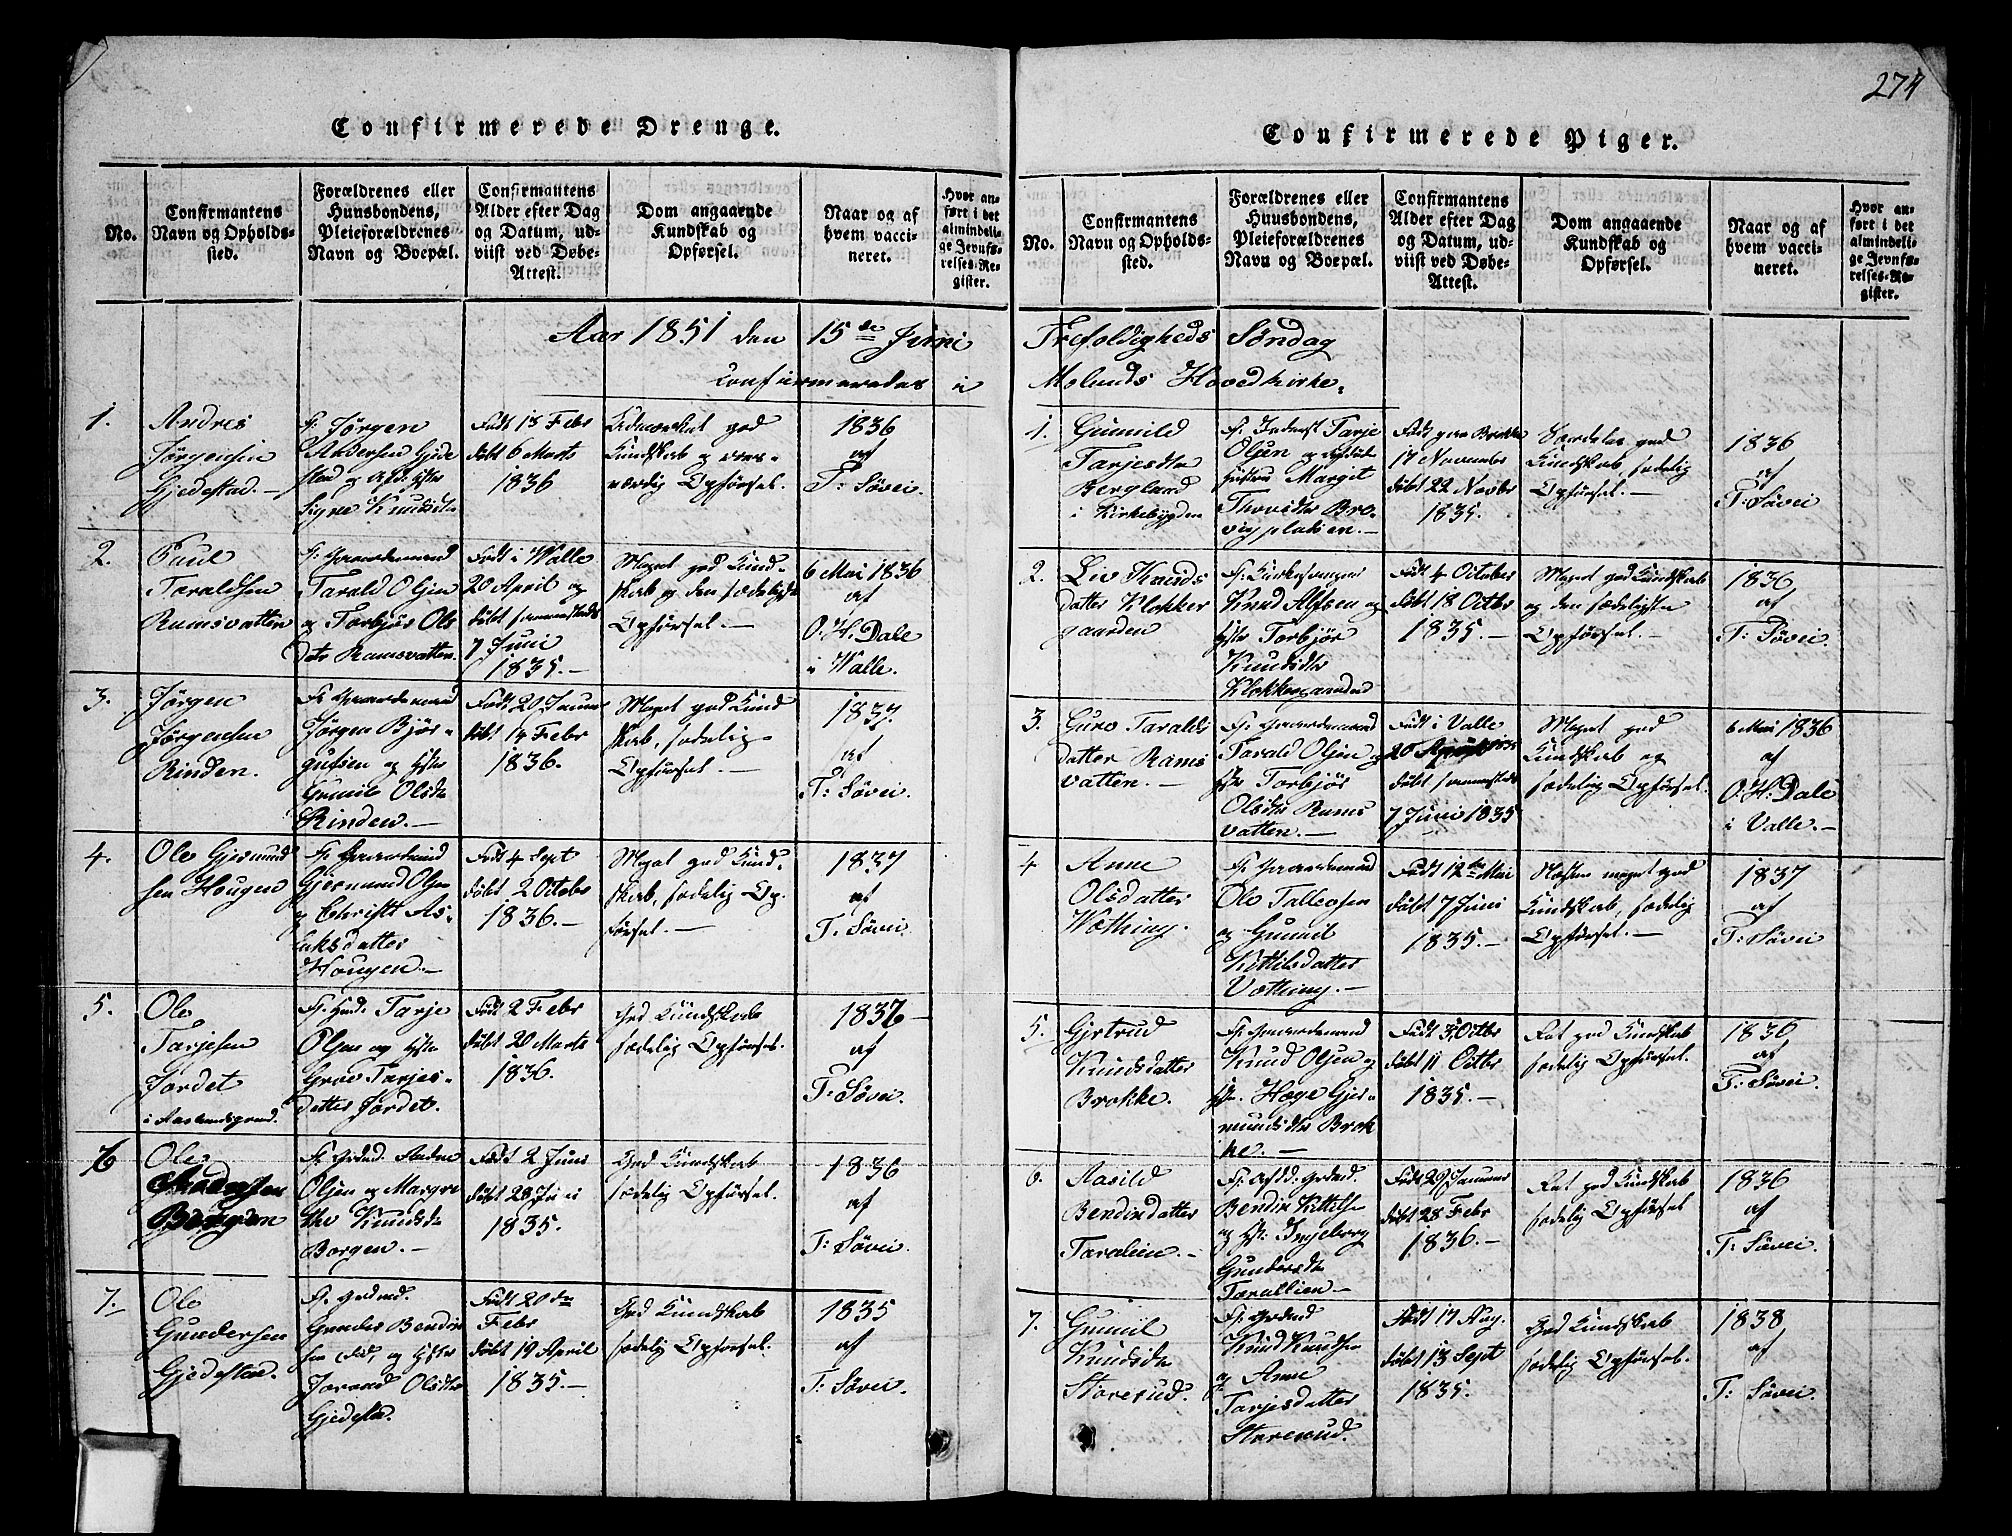 274
Confirmerede Drenge.
No.
Confirmantens
Navn og Opholds-
sted.
Forældrenes eller
Huusbondens,
Pleieforældrenes
Navn og Boepæl.
Confirmantens
Alder efter Dag
og Datum, ud-
viist ved Døbe-
Attest.
Dom angaaende
Kundskab og
Opførsel.
Naar og af
hvem vacci-
neret.
Hvor an-
ført i det
almindeli-
ge Jevnfø-
relses-Re-
gister.
Aar 1851 den 15de Juni
Confirmeredes i
1.
Andres
Jörgensen
Gjedestad.
F: Jörgen
Andersen Gjede
stad og
Signe Knudsdtr
Födt 13 Febr
döbt 6 Marts
1836
Udmærket god
Kundskab og
værdig Opförsel.
1836
af
T: Søvei.
2.
Paul
Taraldsen
Ramsvatten
F: Gaardemand
Tarald Olsen
og Torbjør Ols
datr Ramsvatten.
Födt i Walle
20 April og
döbt sammesteds
7 Juni
1835.
Meget god Kund-
skab og den sædeligste
Opförsel.
6 Mai 1836
af
O. H. Dale
i Walle.
3.
Jörgen
Jörgensen
Rinden.
F: Gaardemand
Jörgen Björ-
gufsen og Hstr
Gunild Olsdtr
Rinden.
Födt 20 Januar
döbt 14 Febr
1836.
Meget god Kund
skab, sædelig
Opförsel.
1837.
af
T: Søvei.
4.
Ole Gjermund
sen Hougen
F: Gaardmand
Gjermund Olsen
og Christi As-
laksdatter
Hougen.
Födt 4 Sept
döbt 2 Octobr
1836.
Meget god Kund-
skab, sædelig Op-
försel.
1837
af
T. Søvei.
5.
Ole
Tarjesen
Jordet
F. Tarje
Olsen og Hstr
Groe Tarjes-
datter Jordet.
Födt 2 Febr
döbt 20 Marts
1836.
God Kundskab
sædelig Opförsel.
1837
af
T: Søvei.
6
Ole
Andersen
Borgen
F: Grdmd. Anders
Olsen og Margre
the Knudsdr
Borgen.
Födt 2 Juni
döbt 28 Juni
1835.
God Kundskab
sædelig Opförsel.
1836
af
T: Søvei.
7.
Ole
Gundersen
Gjedestad.
F. Grdmd.
Gunder Bendix
sen og Hstr
Joraand Olsdtr
Gjedestad.
Födt 20de
Febr
döbt 19 April
1835.
God Kundskab
sædelig Opförsel.
1835
af
T: Søvei.
Confirmerede Piger.
No.
Confirmantens
Navn og Opholds-
sted.
Forældrenes eller
Huusbondens,
Pleieforældrenes
Navn og Boepæl.
Confirmantens
Alder efter Dag
og Datum, ud-
viist ved Døbe-
Attest.
Dom angaaende
Kundskab og
Opførsel.
Naar og af
hvem vacci-
neret.
Hvor an-
ført i det
almindeli-
ge Jevnfø-
relses-Re-
gister.
Trefoldigheds Söndag
Hovedkirke.
1.
Gunnild
Tarjesdtr
Bergland
i Kirkebygden
F. Inderst Tarje
Olsen og
Hustru Margit
Thorsdtr Bro-
veigpladsen.
Födt paa Brokke
17 November
döbt 22 Novbr
1835.
Særdeles god
Kundskab, sædelig
Opförsel.
1836
af
T: Søvei
2.
Liv Knuds
datter Klokker
gaarden
F. Kirkesanger
Knud Alfsen og
Hstr Torbjör
Knudsdtr
Klokkergaarden
Födt 4 October
döbt 18 Octbr
1835.
Meget god Kundskab
og den sædeligste
Opförsel.
1836
af
T: Søvei
3.
Guro Taralds
datter Rams
vatten.
F. Gaardemand
Tarald Olsen og
Hstr Torbjör
Olsdtr Rams
vatten.
Födt i Valle
20 April 1835
döbt sammesteds
7 Juni 1835
Meget god
Kundskab og
sædelig Opförsel.
6 Mai 1836
af
O. H. Dale
i Valle.
4
Anne
Olsdatter
Wæthing.
F. Gaardemand
Ole Talleosen
og Gunnil
Kittilsdatter
Væthing.
Födt 12te Mai
döbt 7 Juni
1835.
Næsten meget god
Kundskab, sædelig
Opförsel.
1837
af
T: Søvei
5.
Gjertrud
Knudsdatter
Brokke.
F. Gaardemand
Knud Olsen og
Hstr. Hæge Gjer-
mundsdtr Brok
ke.
Födt 3 Octbr
döbt 11 Octbr
1835.
Ret god Kundskab
sædelig Opförsel.
1836
af
T: Søvei.
6.
Aasild
Bendixdatter
Taralien.
F. afdd. Grdmd.
Bendix Kittelsen
og Hstr. Ingeborg
Gundersdtr
Tarallien
Födt 29 Januar
döbt 28 Febr
1836.
Ret god Kundskab
sædelig Opförsel
1836
af
T: Søvei.
7.
Gunnil
Knudsdr
Storesud.
F. Grdmd
Knud Knudsen
og Anne
Tarjesdatter
Storesud.
Födt 17 Aug.
döbt 13 Sept
1835.
God Kundskab
sædelig Opförsel.
1838
af
T: Søvei.